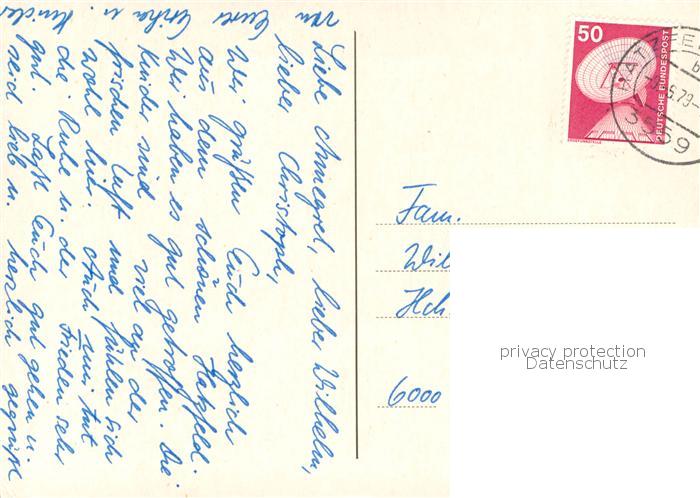 Liebe Annegret, lieber Wilhelm,
lieber Christoph,
Wir grüßen Euch herzlich
aus dem schönen Hatzfeld.
Wir haben es gut getroffen. Die
Kinder sind viel an der
frischen Luft und fühlen sich
wohl hier. Auch uns tut
die Ruhe u. der Frieden sehr
gut. Laßt Euch gut gehen u.
seid lieb u. herzlich gegrüßt
von Eurer Erika u. Kinder
50
DEUTSCHE BUNDESPOST
3559
Fam.
Wil
Hch
6000
privacy protection
Datenschutz